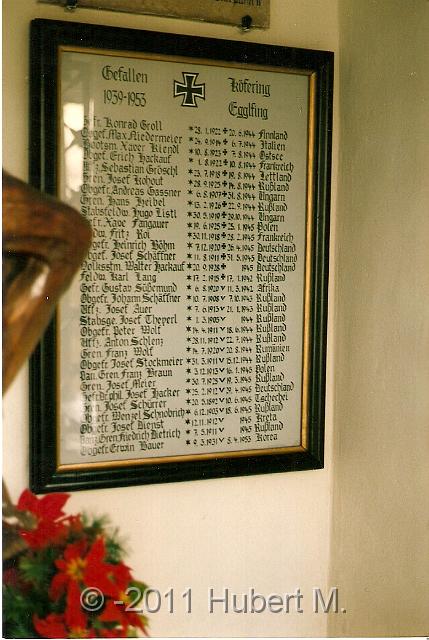 Gefallen
1939-1953
Köfering
Egglfing
Gefr. Konrad Groll *28. 1.1922 ✠ 20. 6.1944 Finnland
Obgef. Max Niedermeier *24. 9.1914 ✠ 6. 7.1944 Italien
Bootsm. Xaver Kiendl *10. 8.1923 ✠ 7. 8.1944 Ostsee
Obgef. Erich Hackauf * 1. 8.1922 ✠ 10. 8.1944 Frankreich
Uffz. Sebastian Gröschl *23. 7.1918 ✠ 19. 8.1944 Lettland
Gren. Josef Kohout *28. 9.1925 ✠ 14. 8.1944 Rußland
Obgefr. Andreas Gassner * 6. 8.1907 ✠ 31. 8.1944 Ungarn
Gren. Hans Heibel *13. 2.1926 ✠ 22. 9.1944 Rußland
Stabsfeldw. Hugo Listl *30. 5.1919 ✠ 29.10.1944 Ungarn
Gefr. Xave Fangauer * 9. 6.1925 ✠ 25. 1.1945 Polen
Feldw. Fritz Roi *30.11.1918 ✠ 28. 2.1945 Frankreich
Obgefr. Heinrich Böhm * 7.12.1920 ✠ 26. 4.1945 Deutschland
Obgef. Josef Schäffner *11. 8.1911 ✠ 31. 5.1945 Deutschland
Volksstm. Walter Hackauf *20. 9.1928 ✠ 1945 Deutschland
Feldw. Karl Lang *17. 2.1915 ✠ 17. 1.1942 Rußland
Gefr. Gustav Süßemund * 6. 8.1920 11. 3.1942 Afrika
Obgefr. Johann Schäffner *10. 7.1908 7.10.1943 Rußland
Uffz. Josef Auer * 7. 6.1913 21. 1.1943 Rußland
Stabsge. Josef Theyerl * 1. 3.1905 1944 Rußland
Obgefr. Peter Wolf *14. 4.1911 18. 6.1944 Rußland
Uffz. Anton Schlenz *28.11.1912 22. 7.1944 Rußland
Gren. Franz Wolf *14. 7.1920 20. 8.1944 Rumänien
Obgef. Josef Stockmeier *31. 3.1911 15.12.1944 Rußland
Pan. Gren. Franz Braun * 3.12.1913 16. 1.1945 Polen
Gren. Josef Meier *30. 7.1925 19. 3.1945 Rußland
Josef Hacker *25. 2.1912 29. 4.1945 Deutschland
Gren. Josef Schürrer *20. 5.1892 10. 6.1945 Tschechei
Obgefr. Wenzel Schnobrich * 6.12.1903 18. 6.1945 Rußland
Obgefr. Josef Dienst *12.11.1912 1945 Kreta
Panz. Gren. Friedrich Dietrich * 7. 5.1911 1945 Rußland
Obgefr. Erwin Bauer * 9. 3.1931 8. 4.1953 Korea
© -2011 Hubert M.